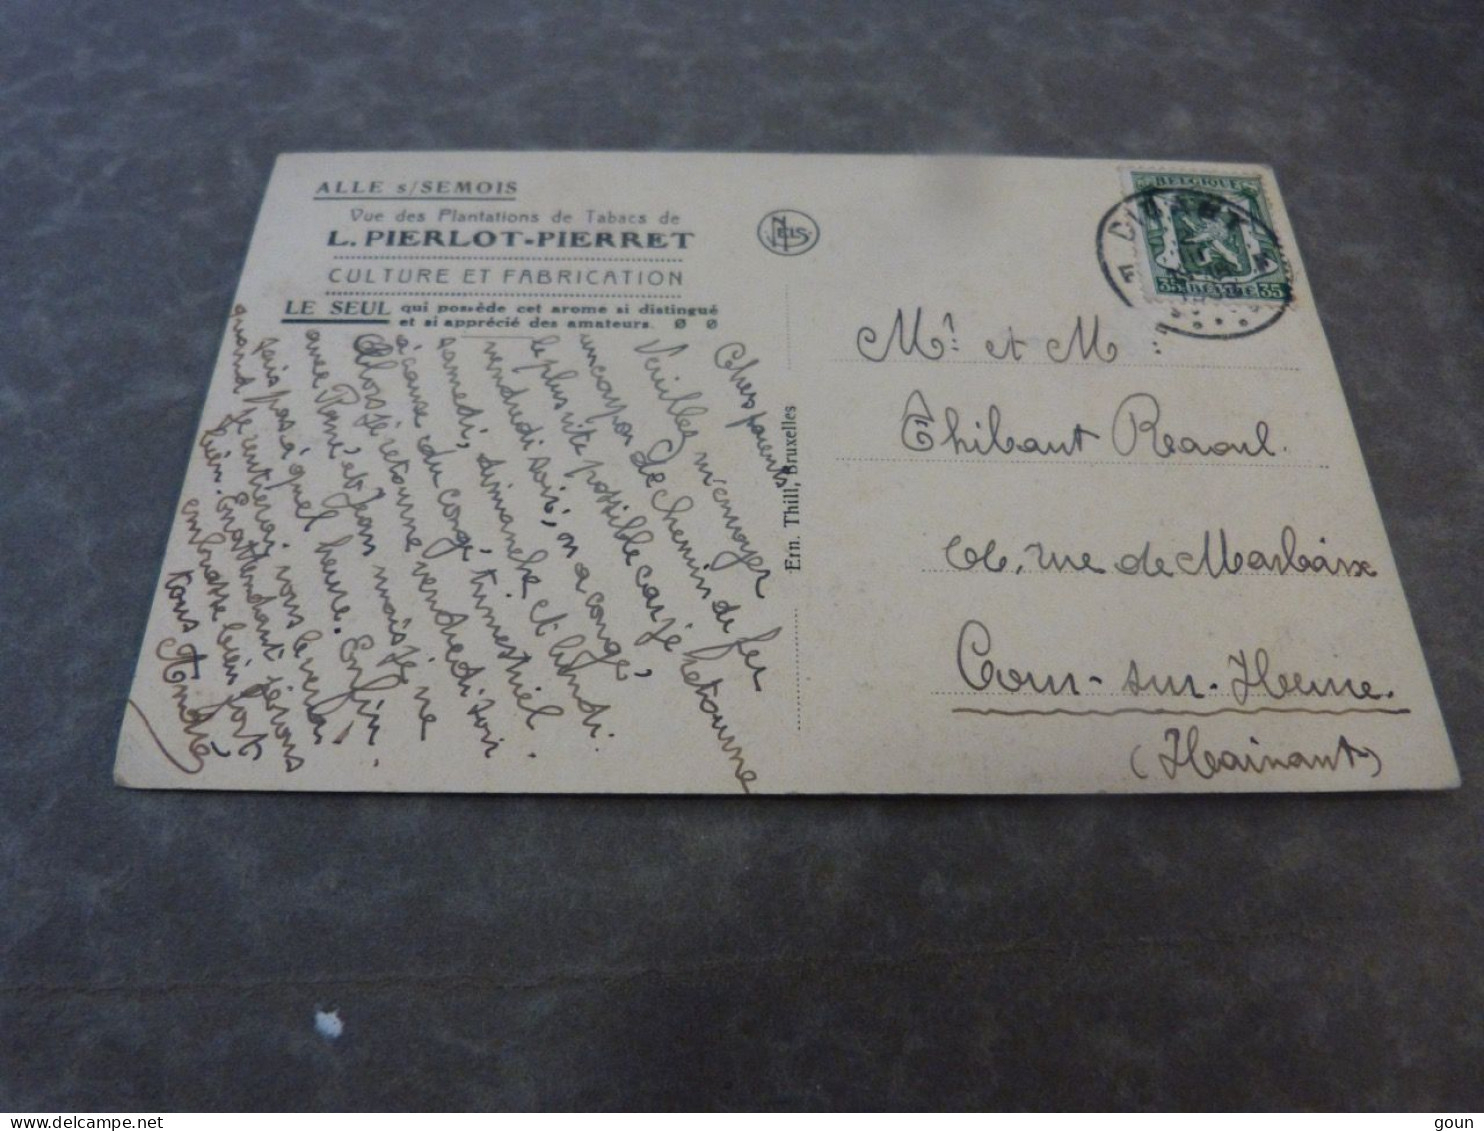 ALLE s/SEMOIS
Vue des Plantations de Tabacs de
L. PIERLOT-PIERRET
CULTURE ET FABRICATION
LE SEUL qui possède cet arome si distingué
et si apprécié des amateurs.
NELS
Ern. Thill, Bruxelles
BELGIQUE
35 BELGIE 35
Chers parents
Veuillez m'envoyer
un coupon de chemin de fer
le plus vite possible car je retourne
vendredi soir, on a congé,
samedi, dimanche et lundi.
à cause du congé trimestriel.
Alors je retourne vendredi soir
avec René et Jean mais je ne
sais pas à quel heure. Enfin
quand je rentierai vous le verez
bien. En attendant je vous
embrasse bien fort
tous André
Mr. et M
Thibaut Raoul.
rue de Marbaix
Cour-sur-Heure.
(Hainaut)
goun